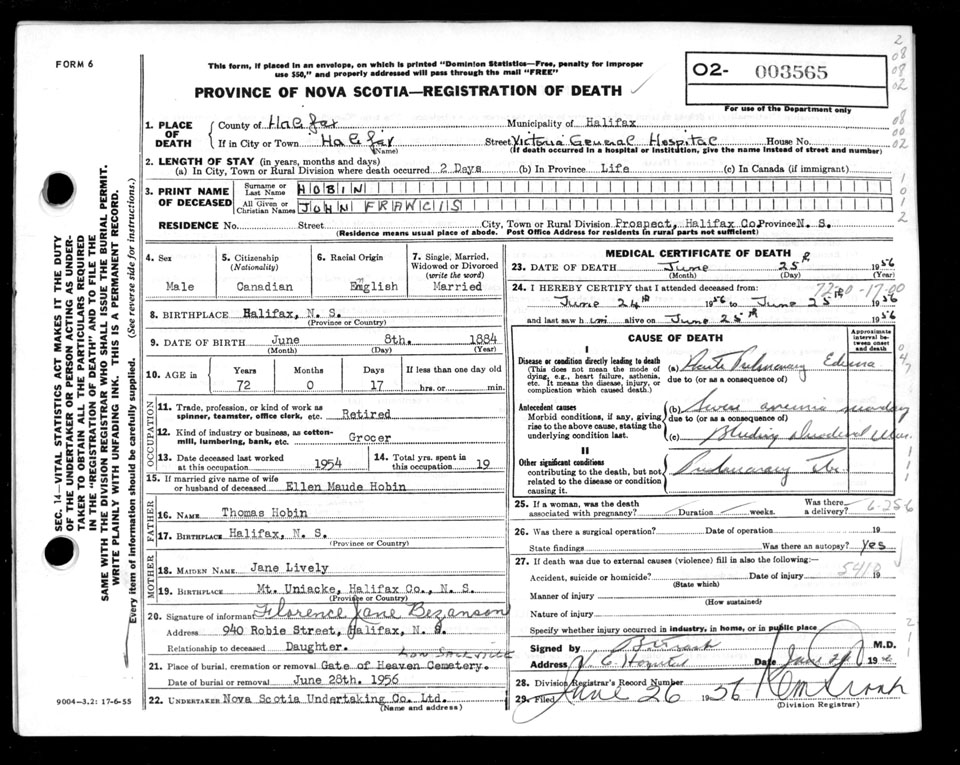 FORM 6
This form, if placed in an envelope, on which is printed "Dominion Statistics—Free, penalty for improper
use $50," and properly addressed will pass through the mail "FREE"
PROVINCE OF NOVA SCOTIA—REGISTRATION OF DEATH
02- 003565
For use of the Department only
1. PLACE OF DEATH County of Halifax Municipality of Halifax
If in City or Town Halifax Street Victoria General Hospital House No.
(Name) (If death occurred in a hospital or institution, give the name instead of street and number)
2. LENGTH OF STAY (in years, months and days)
(a) In City, Town or Rural Division where death occurred 2 Days (b) In Province Life (c) In Canada (if immigrant)
3. PRINT NAME OF DECEASED Surname or Last Name HOBIN
All Given or Christian Names JOHN FRANCIS
RESIDENCE No. Street City, Town or Rural Division Prospect, Halifax Co. Province N. S.
(Residence means usual place of abode. Post Office Address for residents in rural parts not sufficient)
4. Sex 5. Citizenship (Nationality) 6. Racial Origin 7. Single, Married, Widowed or Divorced (write the word)
Male Canadian English Married
8. BIRTHPLACE Halifax, N. S.
(Province or Country)
9. DATE OF BIRTH June 8th. 1884
(Month) (Day) (Year)
10. AGE in Years Months Days If less than one day old
72 0 17 hrs. or min.
OCCUPATION
11. Trade, profession, or kind of work as
spinner, teamster, office clerk, etc. Retired
12. Kind of industry or business, as cotton-
mill, lumbering, bank, etc. Grocer
13. Date deceased last worked at this occupation 1954 14. Total yrs. spent in this occupation 19
15. If married give name of wife
or husband of deceased Ellen Maude Hobin
FATHER
16. NAME Thomas Hobin
17. BIRTHPLACE Halifax, N. S.
(Province or Country)
MOTHER
18. MAIDEN NAME Jane Lively
19. BIRTHPLACE Mt. Uniacke, Halifax Co., N. S.
(Province or Country)
20. Signature of informant Florence Jane Bezanson
Address 940 Robie Street, Halifax, N. S.
Relationship to deceased Daughter.
21. Place of burial, cremation or removal Gate of Heaven Cemetery.
Date of burial or removal June 28th. 1956
22. UNDERTAKER Nova Scotia Undertaking Co. Ltd.
(Name and address)
MEDICAL CERTIFICATE OF DEATH
23. DATE OF DEATH June 25th 1956
(Month) (Day) (Year)
24. I HEREBY CERTIFY that I attended deceased from:
June 24th 1956 to June 25th 1956
and last saw him alive on June 25th 1956
CAUSE OF DEATH
Approximate interval between onset and death
I
Disease or condition directly leading to death
(This does not mean the mode of
dying, e.g., heart failure, asthenia,
etc. It means the disease, injury, or
complication which caused death.)
(a) Acute Pulmonary Edema
due to (or as a consequence of)
Antecedent causes
Morbid conditions, if any, giving
rise to the above cause, stating the
underlying condition last.
(b) Severe anemia secondary
due to (or as a consequence of)
(c) Bleeding Duodenal Ulcer
II
Other significant conditions
contributing to the death, but not
related to the disease or condition
causing it.
Pulmonary Tbc.
25. If a woman, was the death associated with pregnancy? Duration weeks. Was there a delivery?
26. Was there a surgical operation? Date of operation 19
State findings Was there an autopsy? Yes
27. If death was due to external causes (violence) fill in also the following:
Accident, suicide or homicide? Date of injury 19
(State which)
5410
Manner of injury
(How sustained)
Nature of injury
Specify whether injury occurred in industry, in home, or in public place
Signed by M.D.
Address V. G. Hospital Date June 1956
28. Division Registrar's Record Number
29. Filed June 26 1956
(Division Registrar)
SEC. 14—VITAL STATISTICS ACT MAKES IT THE DUTY
OF THE UNDERTAKER OR PERSON ACTING AS UNDER-
TAKER TO OBTAIN ALL THE PARTICULARS REQUIRED
IN THE "REGISTRATION OF DEATH" AND TO FILE THE
SAME WITH THE DIVISION REGISTRAR WHO SHALL ISSUE THE BURIAL PERMIT.
WRITE PLAINLY WITH UNFADING INK. THIS IS A PERMANENT RECORD.
Every item of information should be carefully supplied. (See reverse side for instructions.)
9004-3.2: 17-6-55